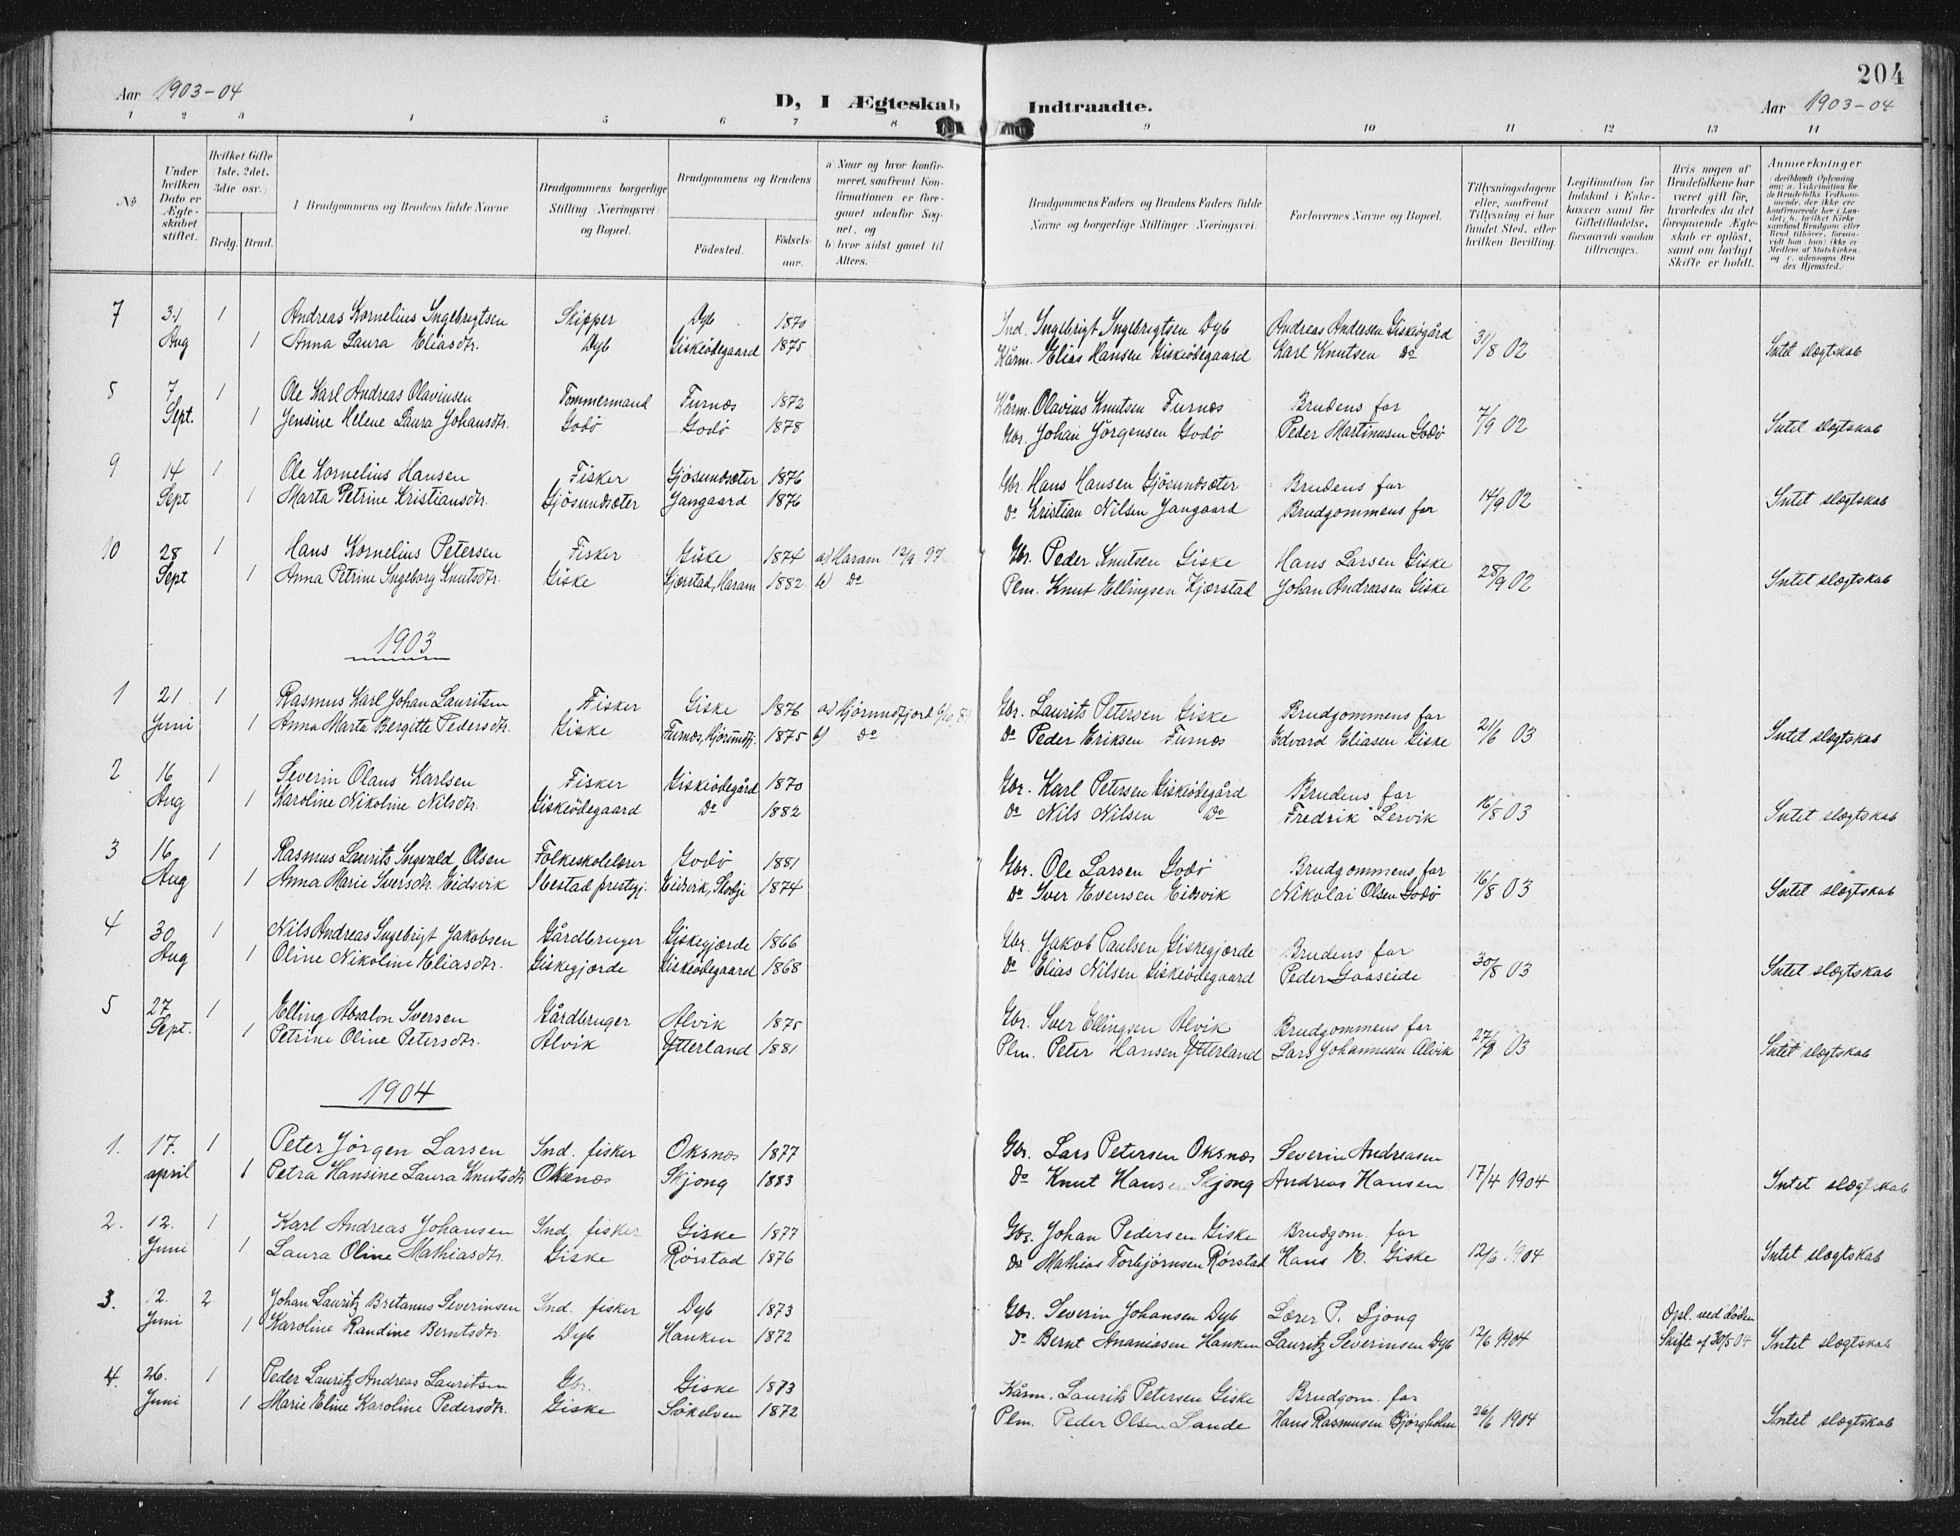 204
Aar 1903-04 D, I Ægteskab Indtraadte. Aar 1903-04
1 2 3 4 5 6 7 8 9 10 11 12 13 14
No
Under hvilken Dato er Ægteskabet stiftet.
Hvilket Gifte (1ste, 2det, 3die osv.)
Brdg. Brud.
Brudgommens og Brudens fulde Navne
Brudgommens borgerlige Stilling (Næringsvei) og Bopæl.
Brudgommens og Brudens
Fødested. Fødselsaar.
a) Naar og hvor konfirmeret, saafremt Konfirmationen er foregaaet udenfor Sognet, og
b) hvor sidst gaaet til Alters.
Brudgommens Faders og Brudens Faders fulde Navne og borgerlige Stillinger (Næringsvei).
Forlovernes Navne og Bopæl.
Tillysningsdagene eller, saafremt Tillysning ei har fundet Sted, efter hvilken Bevilling
Legitimation for Indskud i Enkekassen samt for Giftetilladelse, forsaavidt saadan tiltrænges.
Hvis nogen af Brudefolkene har været gift før, hvorledes da det foregaaende Ægteskab er opløst, samt om lovligt Skifte er holdt.
Anmærkninger
7 31 1 Andreas Kornelius Ingebrigtsen Skipper Dyb 1870 Ind. Ingebrigt Ingebrigtsen Dyb Andreas Andersen Giskeøgård
Aug 1 Anna Laura Eliasdtr. Dyb Giskeødegaard 1875 Kårm. Elias Hansen Giskeødegaard Karl Knutsen Do 31/8 02 Intet slægtskab
5 7 1 Ole Karl Andreas Olavinsen Tømmermand Furnæs 1872 Kårm. Olavius Knutsen Furnæs Brudens far
Sept. 1 Jensine Helene Laura Johansdtr. Godø Godø 1878 Gbr. Johan Jørgensen Godø Peder Martinusen Godø 7/9 02 Intet slægtskab
9 14 1 Ole Kornelius Hansen Fisker Gjøsundsæter 1876 Gbr. Hans Hansen Gjøsundsæter Brudens far
Sept 1 Marta Petrine Kristiansdtr. Gjøsundsæter Gangaard 1876 Do Kristian Nilsen Gangaard Brudgommens far 14/9 02 Intet slægtskab
10 28 1 Hans Kornelius Petersen Fisker Giske 1874 a) Haram 12/9 97 Gbr. Peder Knutsen Giske Hans Larsen Giske
Sept 1 Anna Petrine Ingeborg Knutsdtr. Giske Gjærstad, Haram 1882 b) Do Plm. Knut Ellingsen Kjærstad Johan Andreasen Giske 28/9 02 Intet slægtskab
1903
1 21 1 Rasmus Karl Johan Lauritsen Fisker Giske 1876 a) Hjørundfjord 6/10 89 Gbr. Laurits Petersen Giske Brudgommens far
Juni 1 Anna Marta Bergitte Pedersdtr. Giske Furnæs, Hjørundfj. 1875 b) Do Do Peder Eriksen Furnæs Edvard Eliasen Giske 21/6 03 Intet slægtskab
2 16 1 Severin Olaus Karlsen Fisker Giskeødegård 1870 Gbr. Karl Petersen Giskeødegård Brudens far
Aug 1 Karoline Nikoline Nilsdtr. Giskeødegaard Do 1882 Do Nils Nilsen Do Fredrik Lervik 16/8 03 Intet slægtskab
3 16 1 Rasmus Laurits Ingvald Olsen Folkeskolelærer Godø 1881 Gbr. Ole Larsen Godø Brudgommens far
Aug 1 Anna Marie Sversdtr. Eidsvik Ibestad prestgj. Eidsvik, Skodje 1874 Do Sver Evensen Eidsvik Nikolai Olsen Godø 16/8 03 Intet slægtskab
4 30 1 Nils Andreas Ingebrigt Jakobsen Gårdbruger Giskegjærde 1866 Gbr. Jakob Paulsen Giskegjærde Brudens far
Aug 1 Oline Nikoline Eliasdtr. Giskegjærde Giskeødegaard 1868 Do Elias Nilsen Giskeødegaard Peder Gaaseide 30/8 03 Intet slægtskab
5 27 1 Elling Absalon Sversen Gårdbruger Alvik 1875 Gbr. Sver Ellingsen Alvik Brudgommens far
Sept. 1 Petrine Oline Petersdtr. Alvik Ytterland 1881 Plm. Peter Hansen Ytterland Lars Johannesen Alvik 27/9 03 Intet slægtskab
1904
1. 17. 1 Peter Jørgen Larsen Ind. fisker Oksnæs 1877 Gbr. Lars Petersen Oksnæs Severin Andreasen
april 1 Petra Hansine Laura Knutsdtr. Oksnæs Skjong 1883 Do Knut Hansen Skjong Andreas Hansen 17/4 1904 Intet slægtskab
2. 12. 1 Karl Andreas Johansen Ind. fisker Giske 1877 Gbr. Johan Pedersen Giske Brudgom. far
Juni 1 Laura Oline Mathiasdtr. Giske Rørstad 1876 Do Mathias Torbjørnsen Rørstad Hans K. Giske 12/6 1904 Intet slægtskab
3. 12. 2 Johan Lauritz Bretanus Severinsen Ind. fisker Dyb 1873 Gbr. Severin Johansen Dyb Lærer P. Sjong Opl. ved døden
Juni 1 Karoline Randine Berntsdtr. Dyb Hanken 1872 Do Bernt Ananiasen Hanken Lauritz Severinsen Dyb 12/6 1904 Skifte af 30/5 04 Intet slægtskab
4. 26. 1 Peder Lauritz Andreas Lauritsen Gbr. Giske 1873 Kårm. Laurits Petersen Giske Brudgom. far
Juni 1 Marie Eline Karoline Pedersdtr. Giske Søkelven 1872 Plm. Peder Olsen Sande Hans Rasmusen Bjørgholm 26/6 1904 Intet slægtskab